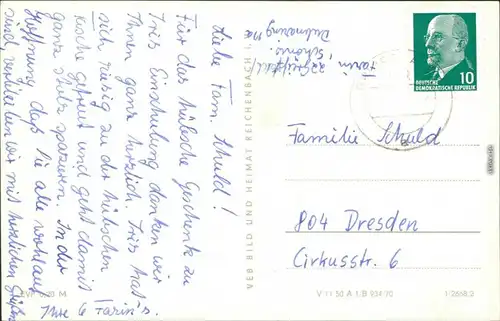 Liebe Fam. Schuld!
Für das hübsche Geschenk zu
Iris Einschulung danken wir
Ihnen ganz herzlich. Iris hat's
sich riesig zu der hübschen
Tasche gefreut und geht damit
ganz stolz spazieren. In der
Hoffnung, daß Sie alle wohlauf
sind, verbleiben wir mit herzlichen Grüßen
Ihre 6 Farin's.
Farin,
VEB BILD UND HEIMAT REICHENBACH i.
DEUTSCHE
DEMOKRATISCHE REPUBLIK
10
Familie Schuld
804 Dresden
Cirkusstr. 6
M
V 11 50 A 1/B 934/70
1/2668/2